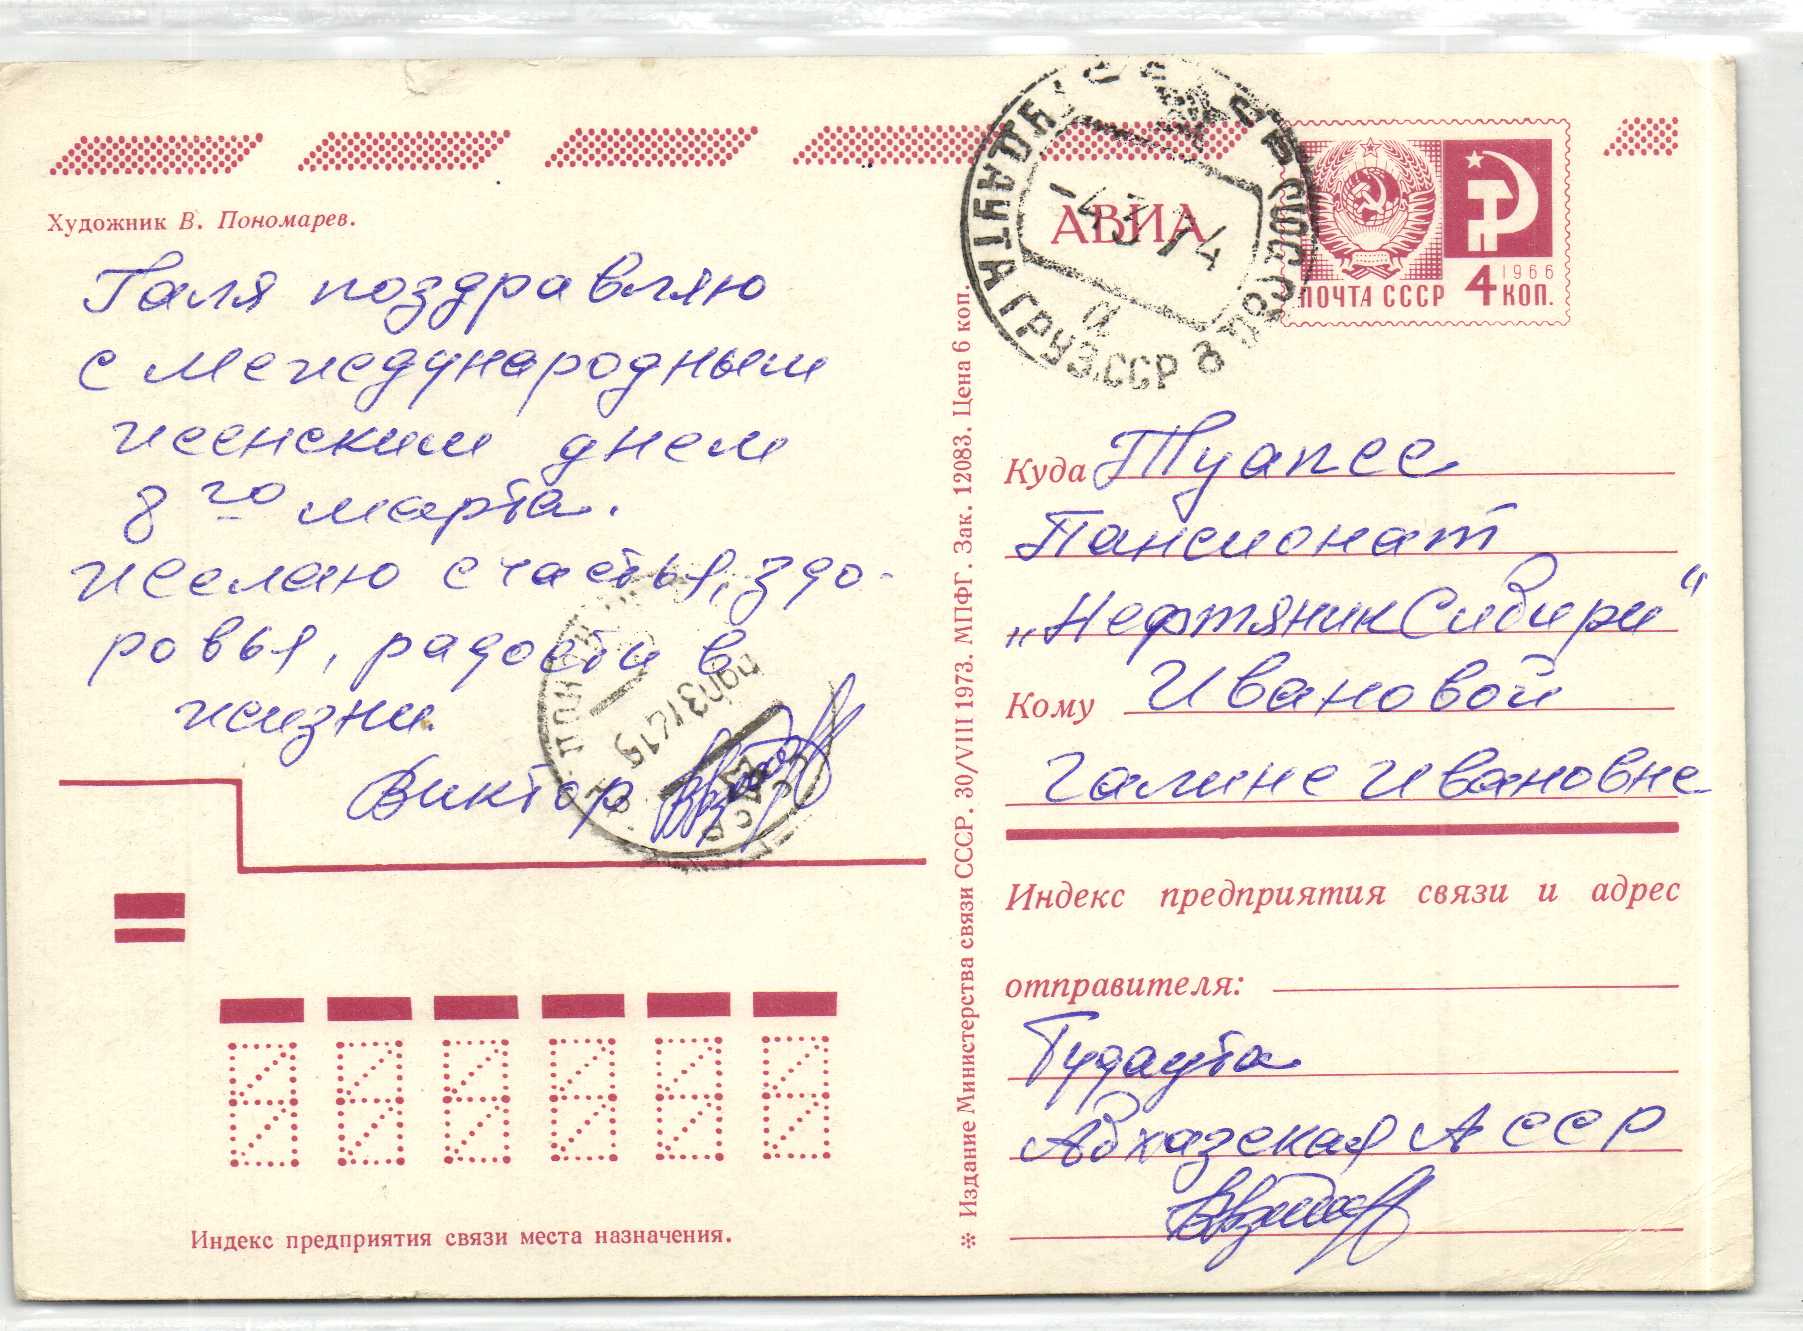 Художник В. Пономарев.
Галя поздравляю
с международным
женским днем
8го марта.
желаю счастья, здо-
ровья, радости в
жизни.
Виктор
Индекс предприятия связи места назначения.
* Издание Министерства связи СССР. 30/VIII 1973. МПФГ. Зак. 12083. Цена 6 коп.
АВИА
-4 3 74
ГУДАУТА ГРУЗ.ССР
а
ПОЧТА СССР 4 КОП.
1966
Куда Туапсе
Пансионат
„Нефтяник Сибири“
Кому Ивановой
Галине Ивановне
Индекс предприятия связи и адрес
отправителя:
Гудаута
Абхазская АССР